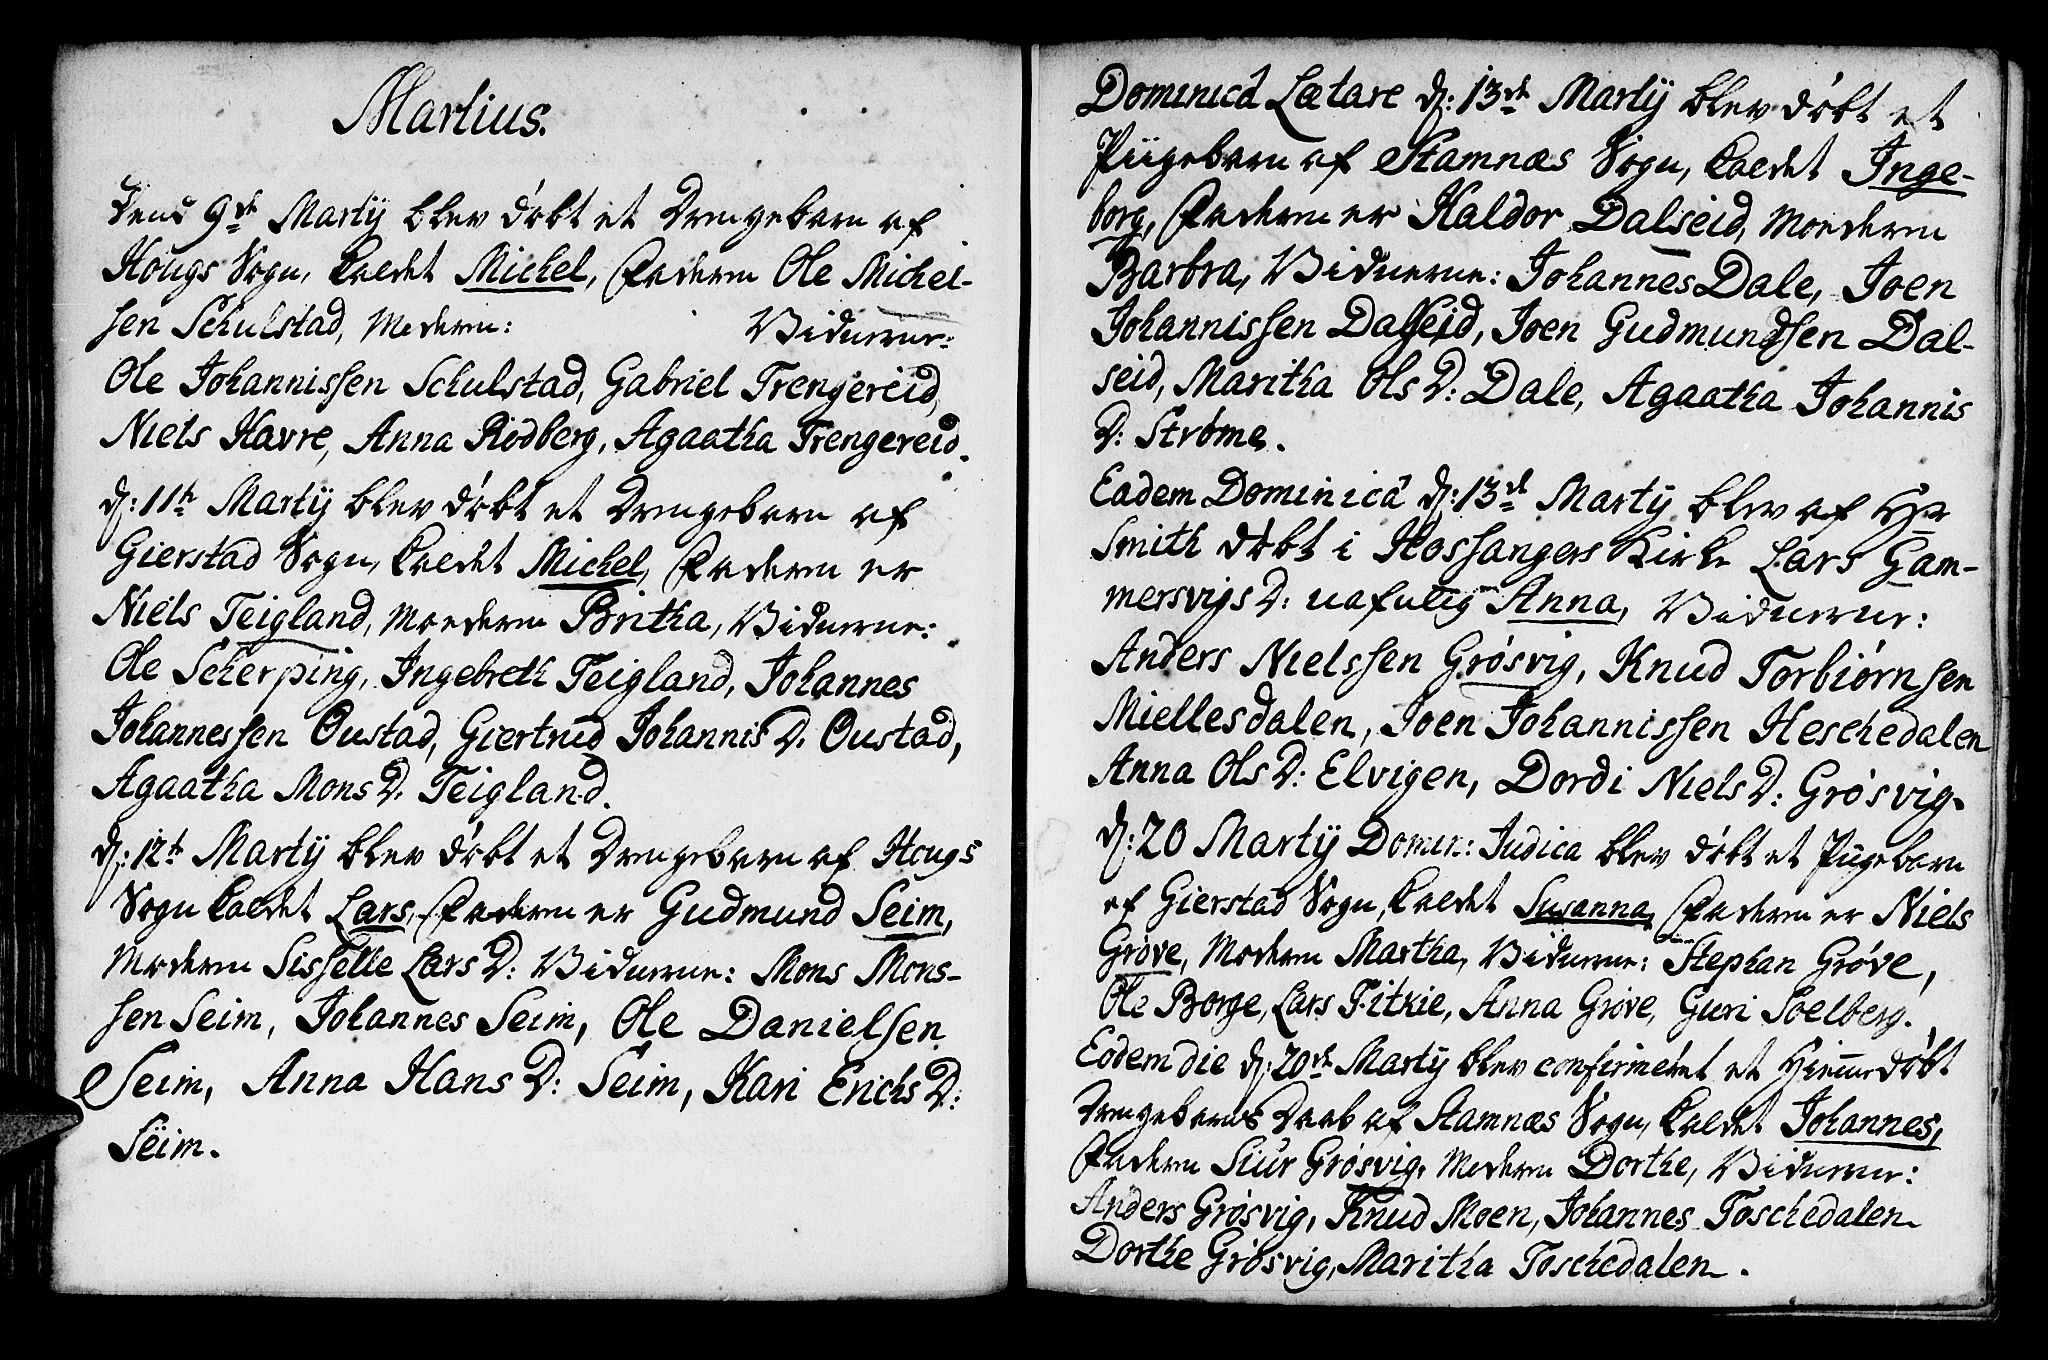 Martius.
Dend 9de Martÿ blev döbt et Drengebarn af
Hougs Sogn, kaldet Michel, Faderen Ole Michel-
sen Schulstad, Moderen: Vidnerne:
Ole Johannissen Schulstad, Gabriel Trengereid,
Niels Havre, Anna Rödberg, Agaatha Trengereid.
d: 11te Martÿ blev döbt et Drengebarn af
Gierstad Sogn, kaldet Michel, Faderen er
Niels Teigland, Moederen Britha, Vidnerne:
Ole Scherping, Ingebreth Teigland, Johannes
Johannessen Oustad, Giertrud Johannis D. Oustad,
Agaatha Mons D. Teigland.
d: 12te Martÿ blev döbt et Drengebarn af Hougs
Sogn kaldet Lars, Faderen er Gudmund Seim,
Moderen Sisselle Lars D: Vidnerne: Mons Mons-
sen Seim, Johannes Seim, Ole Danielsen
Seim, Anna Hans D: Seim, Kari Erichs D:
Seim.
Dominicâ Lætare d: 13de Martÿ blev döbt et
Piigebarn af Stamnæs Sogn, kaldet Inge-
borg, Faderen er Haldor Dalseid, Moederen
Barbra, Vidnerne: Johannes Dale, Joen
Johannissen Dalseid, Joen Gudmundsen Dal-
seid, Maritha Ols D: Dale, Agaatha Johannis
D: Strøme.
Eadem Dominicâ d: 13de Martÿ blev af Hr
Smith döbt i Hossangers Kirke Lars Gam-
mersvigs D: nafnlig Anna, Vidnerne:
Anders Nielssen Grösvig, Knud Torbiörnsen
Miellesdalen, Joen Johannissen Heschedalen
Anna Ols D: Elvigen, Dordi Niels D: Grösvig.
d: 20 Martÿ Domin: Judica blev döbt et Piigebarn
af Gierstad Sogn, kaldet Susanna, Faderen er Niels
Gröve, Moderen Martha, Vidnerne: Stephan Gröve,
Ole Borge, Lars Fitxie, Anna Gröve, Guri Soelberg.
Eodem die d: 20de Martÿ blev confirmeret et Hiemmedöbt
Drengebarns Daab af Stamnæs Sogn, kaldet Johannes,
Faderen Siur Grösvig, Moderen Dorthe, Vidnerne:
Anders Grösvig, Knud Moen, Johannes Toschedalen
Dorthe Grösvig, Maritha Toschedalen.